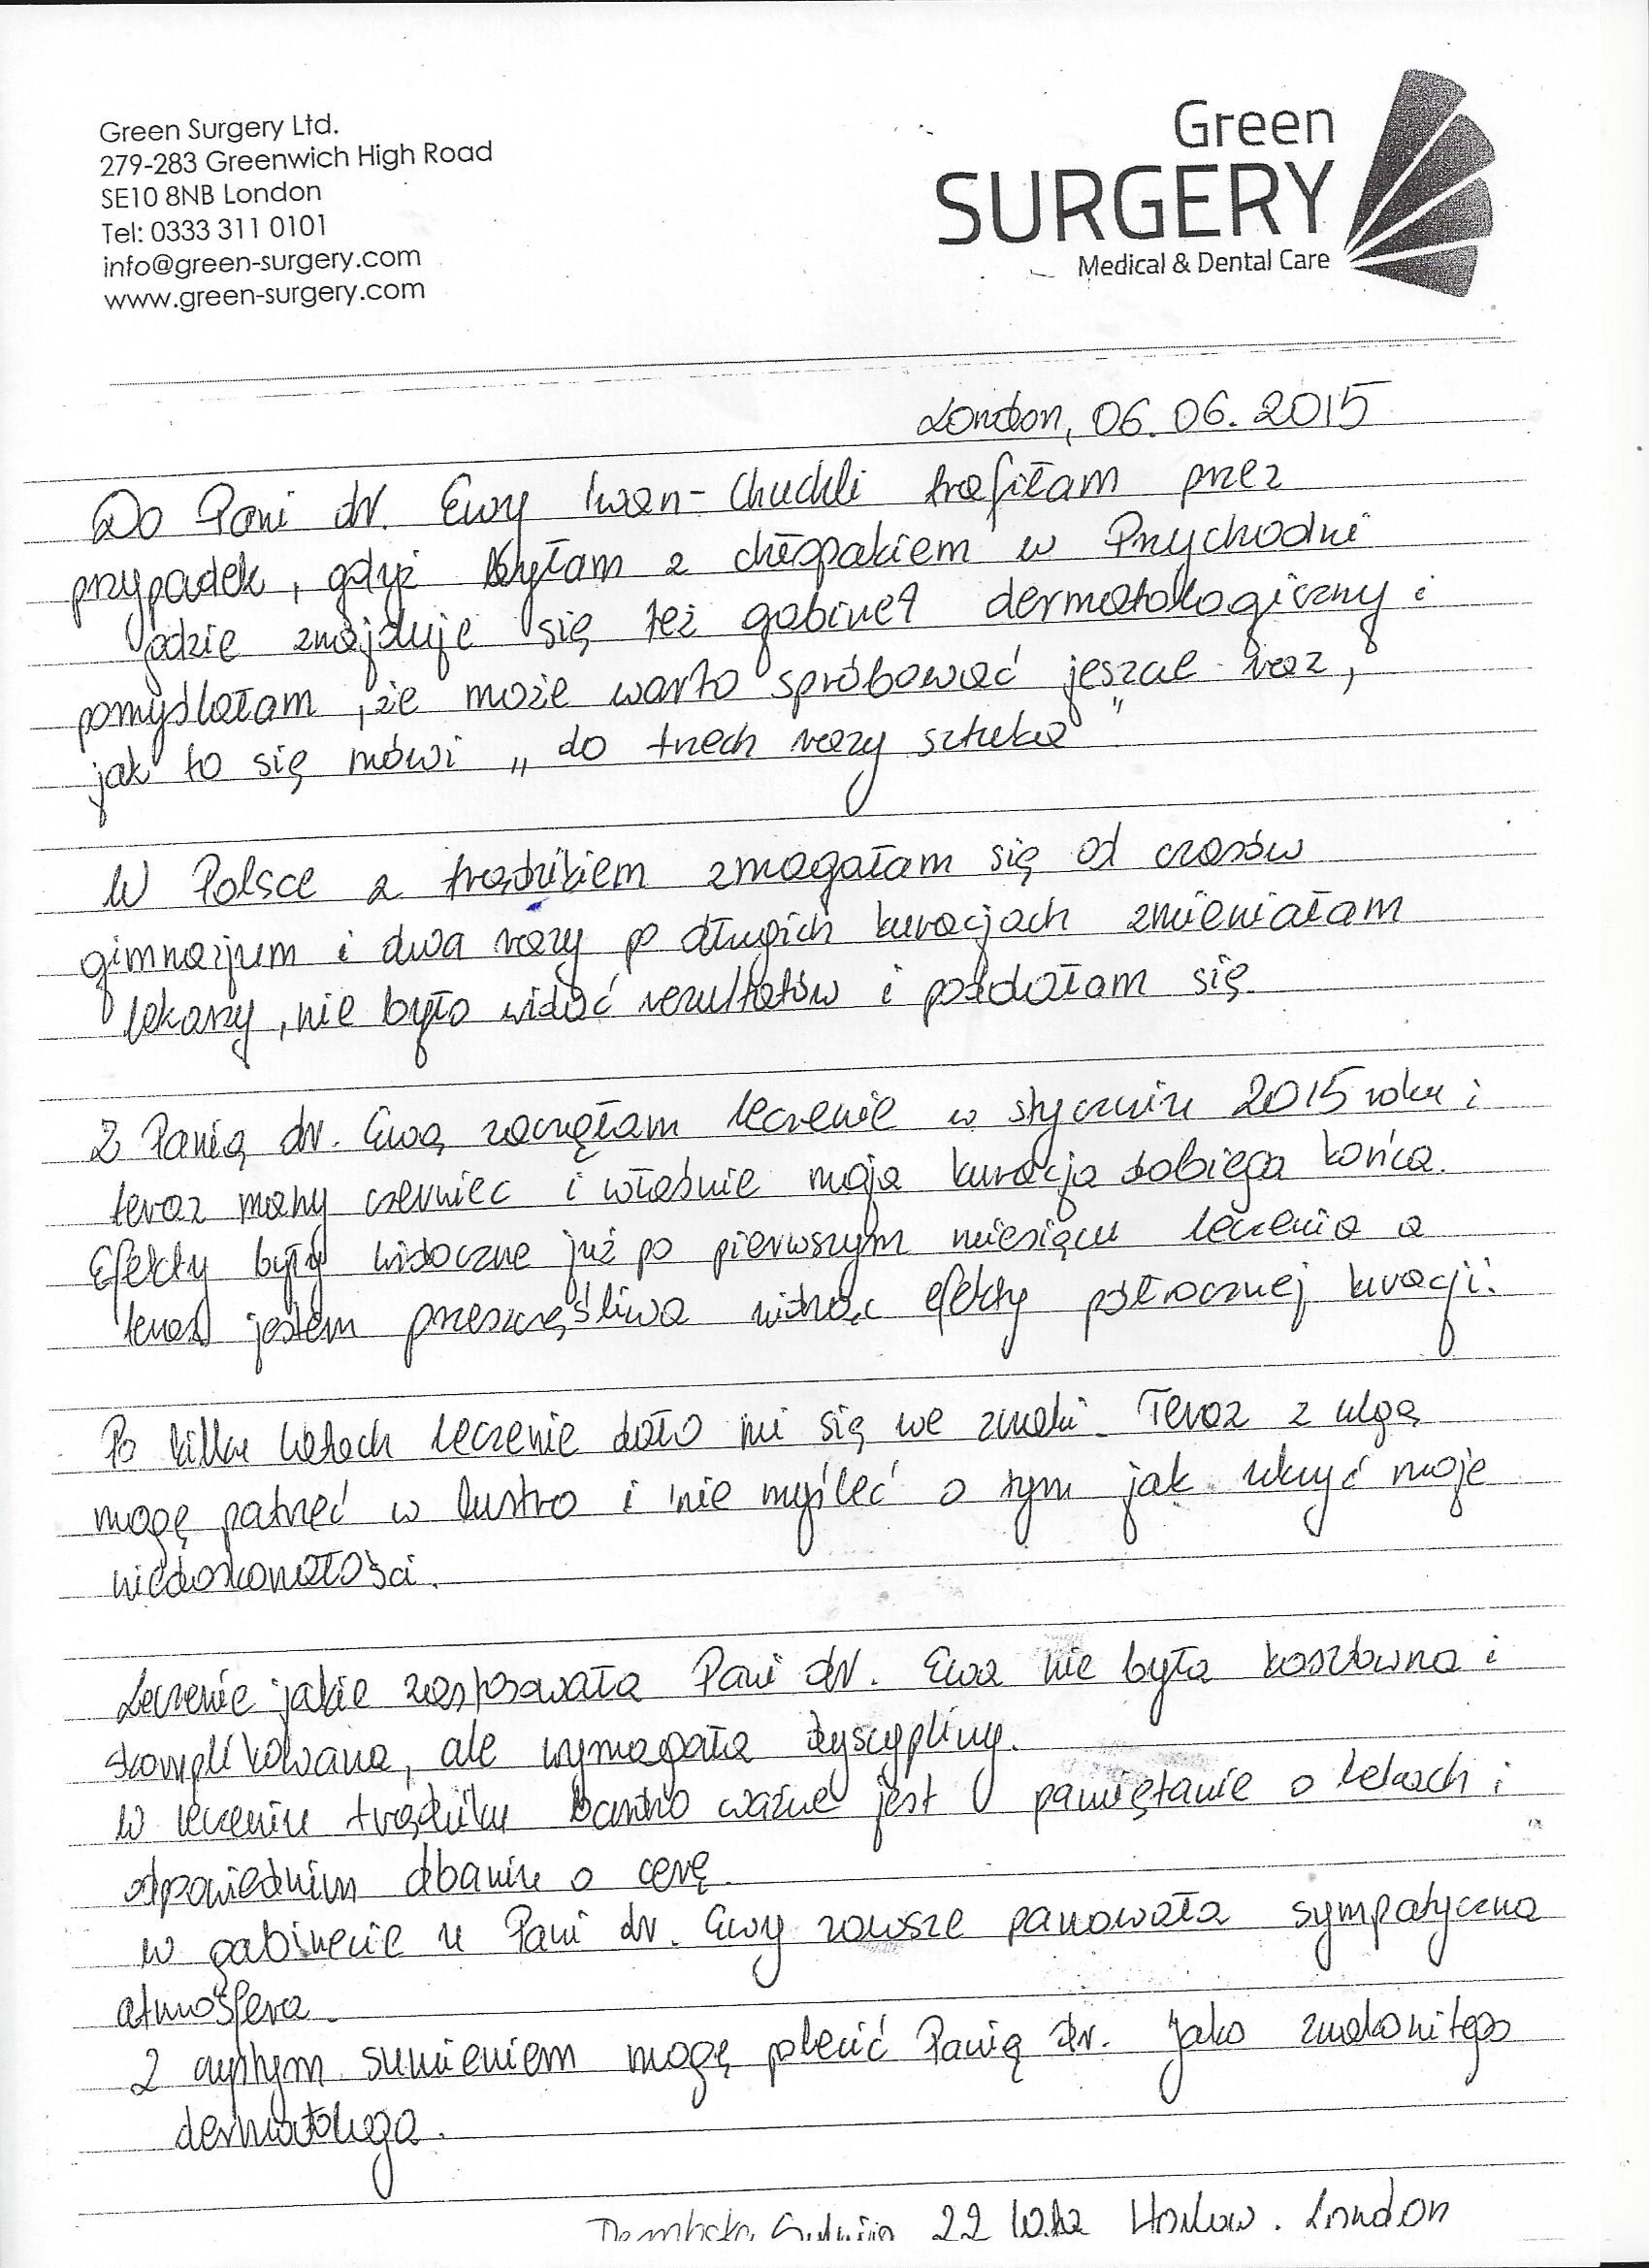 Green Surgery Ltd.
279-283 Greenwich High Road
SE10 8NB London
Tel: 0333 311 0101
info@green-surgery.com
www.green-surgery.com
Green
SURGERY
Medical & Dental Care
London, 06.06.2015
Do Pani dr. Ewy Iwan-Chuchli trafiłam przez
przypadek, gdyż byłam z chłopakiem w Przychodni
gdzie znajduje się też gabinet dermatologiczny i
pomyślałam, że może warto spróbować jeszcze raz,
jak to się mówi „do trzech razy sztuka”
W Polsce z trądzikiem zmagałam się od czasów
gimnazjum i dwa razy po długich kuracjach zmieniałam
lekarzy, nie było widać rezultatów i poddałam się.
Z Panią dr. Ewą zaczęłam leczenie w styczniu 2015 roku i
teraz mamy czerwiec i właśnie moja kuracja dobiega końca.
Efekty były widoczne już po pierwszym miesiącu leczenia a
teraz jestem przeszczęśliwa widząc efekty półrocznej kuracji.
Po kilku latach leczenie dało mi się we znaki. Teraz z ulgą
mogę patrzeć w lustro i nie myśleć o tym jak ukryć moje
niedoskonałości.
Leczenie jakie zastosowała Pani dr. Ewa nie była kosztowna i
skomplikowana, ale wymagała dyscypliny.
W leczeniu trądziku bardzo ważne jest pamiętanie o lekach i
odpowiednim dbaniu o cerę.
W gabinecie u Pani dr. Ewy zawsze panowała sympatyczna
atmosfera.
Z czystym sumieniem mogę polecić Panią dr. jako znakomitego
dermatologa.
22 lata London